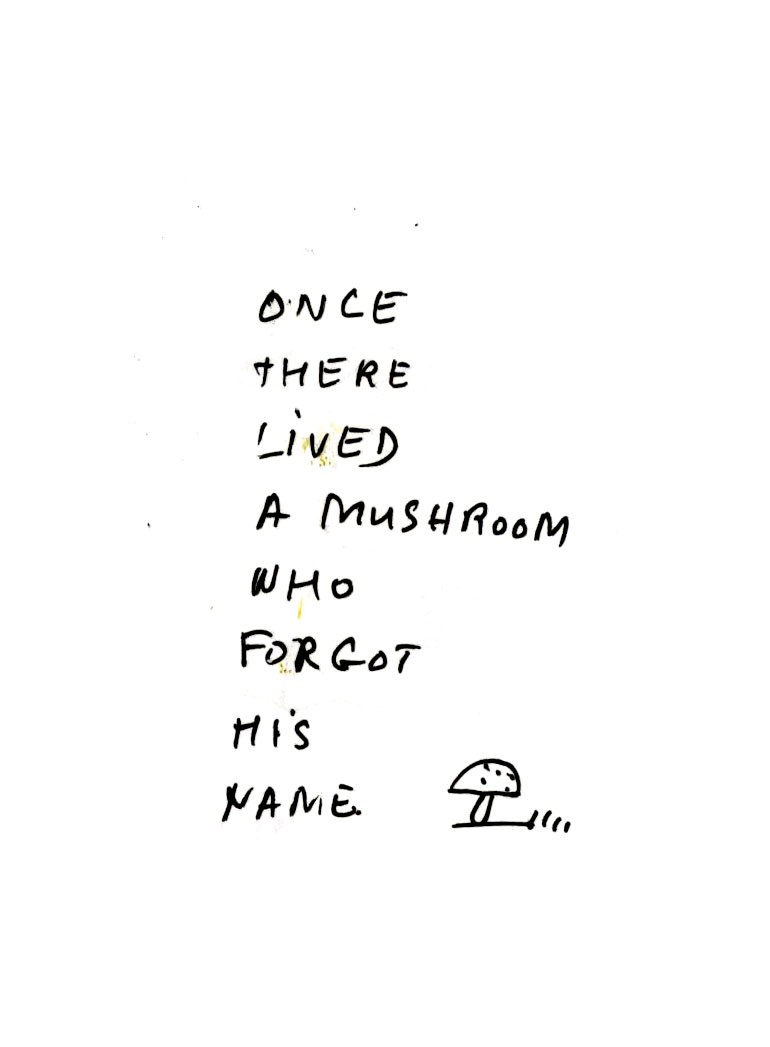 ONCE
THERE
LiVED
A MUSHROOM
WHO
FORGOT
HiS
NAME.